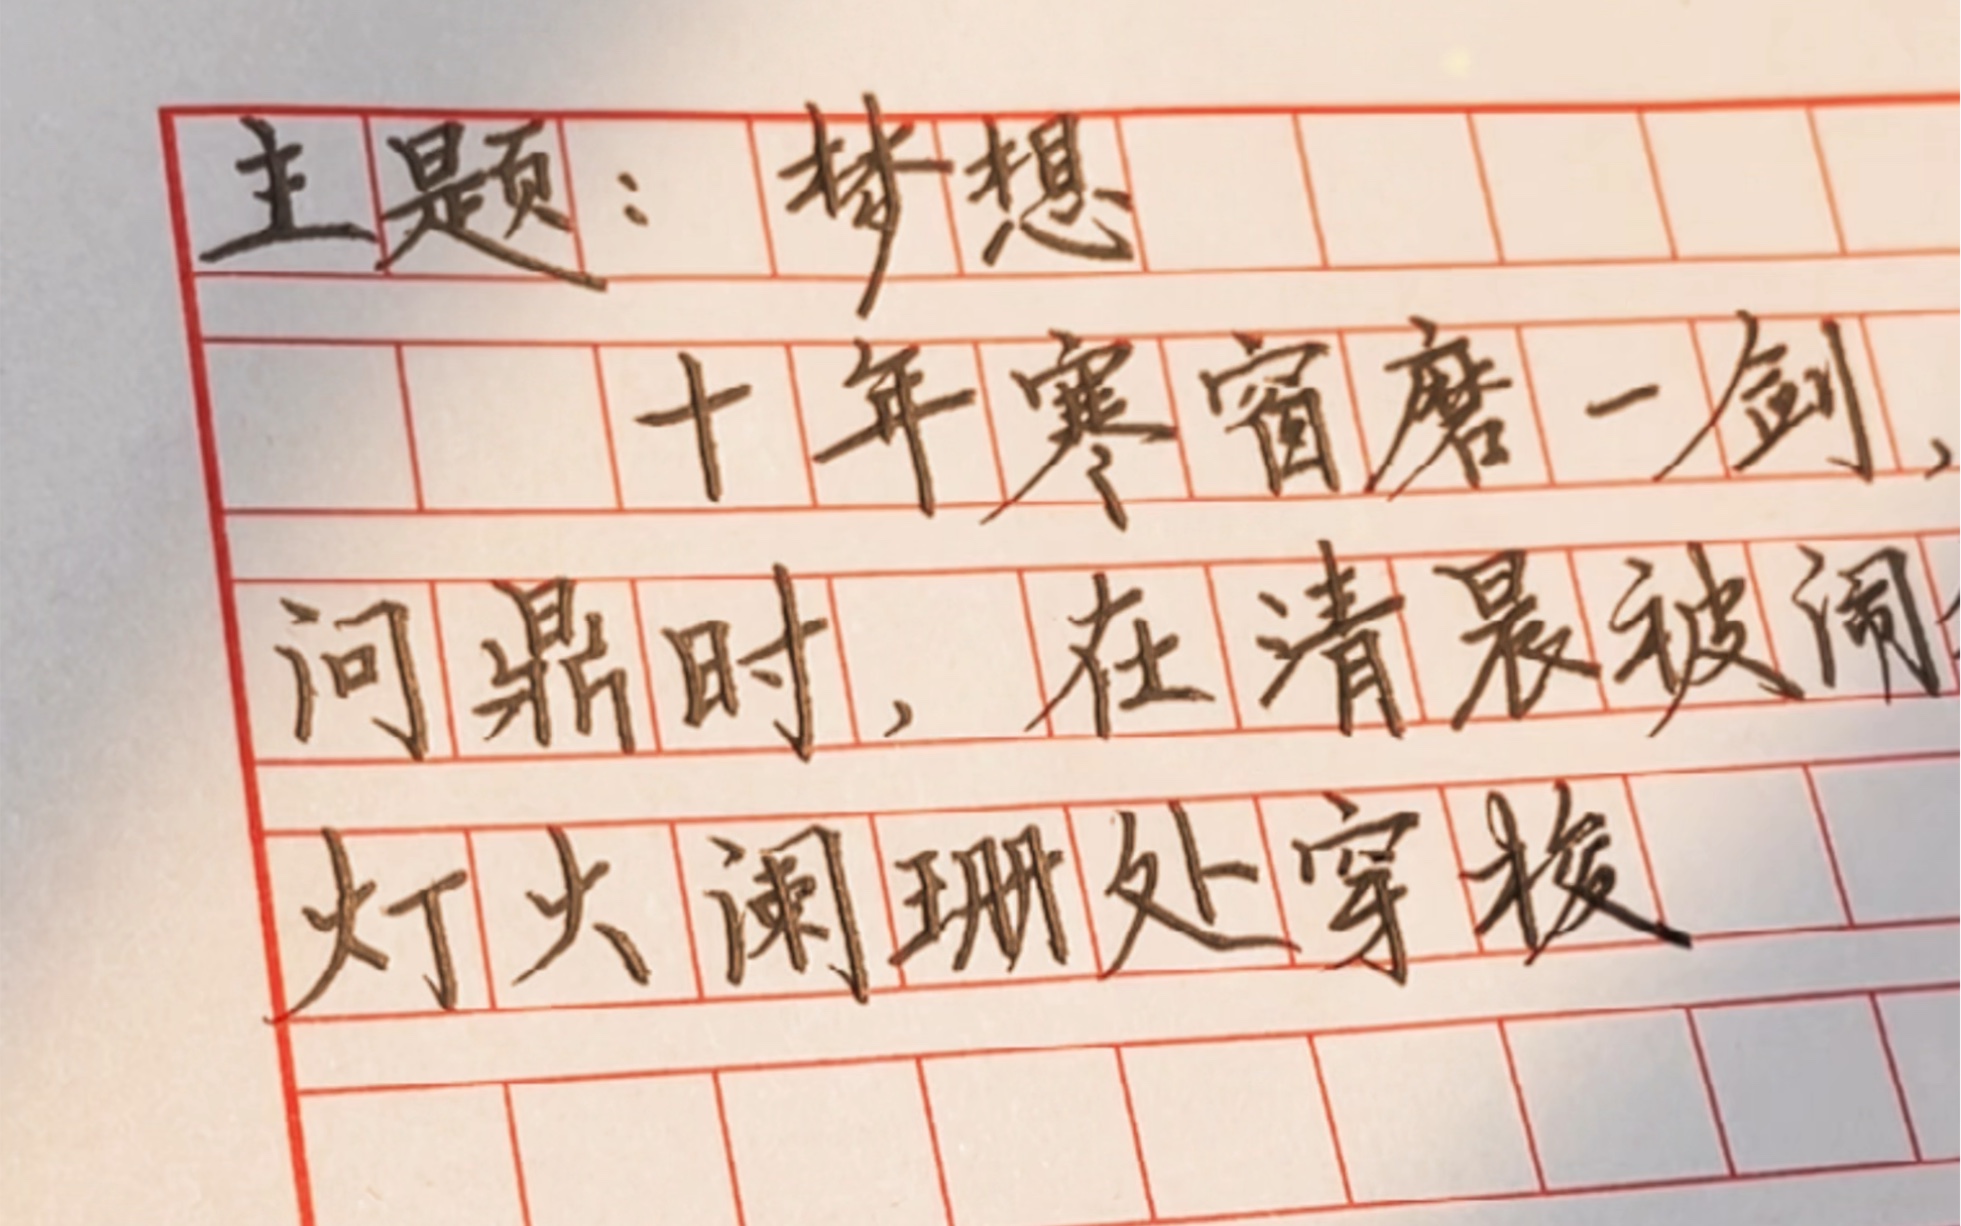 主题：梦想
十年寒窗磨一剑，
问鼎时，在清晨被闹
灯火阑珊处穿梭